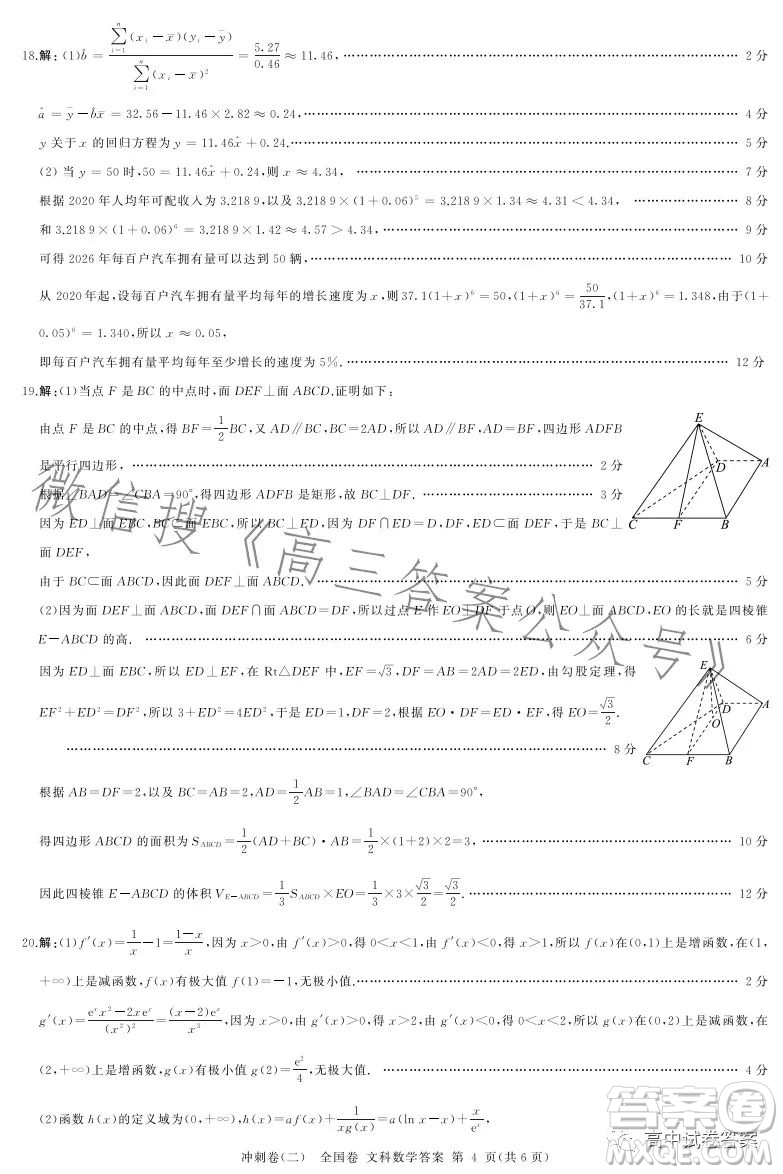 18.解:(1)b̂=\frac{\sum_{i=1}^{n}(x_i-x̄)(y_i-ȳ)}{\sum_{i=1}^{n}(x_i-x̄)^2}=\frac{5.27}{0.46}≈11.46,……2分
â=ȳ-b̂x̄=32.56-11.46×2.82≈0.24,……4分
y关于x的回归方程为y=11.46x̂+0.24.……5分
(2)当y=50时,50=11.46x̂+0.24,则x≈4.34,……7分
根据2020年人均年可配收入为3.218 9,以及3.218 9×(1+0.06)^5=3.218 9×1.34≈4.31<4.34,……8分
和3.218 9×(1+0.06)^6=3.218 9×1.42≈4.57>4.34,……9分
可得2026年每百户汽车拥有量可以达到50辆,……10分
从2020年起,设每百户汽车拥有量平均每年的增长速度为x,则37.1(1+x)^6=50,(1+x)^6=\frac{50}{37.1},(1+x)^6=1.348,由于(1+
0.05)^6=1.340,所以x≈0.05,
即每百户汽车拥有量平均每年至少增长的速度为5%.……12分
19.解:(1)当点F是BC的中点时,面DEF⊥面ABCD.证明如下:
由点F是BC的中点,得BF=\frac{1}{2}BC,又AD∥BC,BC=2AD,所以AD∥BF,AD=BF,四边形ADFB
是平行四边形,……2分
根据∠BAD=∠CBA=90°,得四边形ADFB是矩形,故BC⊥DF.……3分
因为ED⊥面EBC,BC⊂面EBC,所以BC⊥ED,因为DF∩ED=D,DF,ED⊂面DEF,于是BC⊥
面DEF,
由于BC⊂面ABCD,因此面DEF⊥面ABCD.……5分
E
D
A
C
F
B
(2)因为面DEF⊥面ABCD,面DEF∩面ABCD=DF,所以过点E作EO⊥DF于点O,则EO⊥面ABCD,EO的长就是四棱锥
E-ABCD的高.……6分
因为ED⊥面EBC,所以ED⊥EF,在Rt△DEF中,EF=√3,DF=AB=2AD=2ED,由勾股定理,得
EF²+ED²=DF²,所以3+ED²=4ED²,于是ED=1,DF=2,根据EO·DF=ED·EF,得EO=\frac{√3}{2}.
……8分
E
D
A
O
C
F
B
根据AB=DF=2,以及BC=AB=2,AD=\frac{1}{2}AB=1,∠BAD=∠CBA=90°,
得四边形ABCD的面积为S_{ABCD}=\frac{1}{2}(AD+BC)·AB=\frac{1}{2}×(1+2)×2=3,……10分
因此四棱锥E-ABCD的体积V_{E-ABCD}=\frac{1}{3}S_{ABCD}×EO=\frac{1}{3}×3×\frac{√3}{2}=\frac{√3}{2}.……12分
20.解:(1)f′(x)=\frac{1}{x}-1=\frac{1-x}{x},因为x>0,由f′(x)>0,得0<x<1,由f′(x)<0,得x>1,所以f(x)在(0,1)上是增函数,在(1,
+∞)上是减函数,f(x)有极大值f(1)=-1,无极小值.……2分
g′(x)=\frac{e^x x²-2xe^x}{(x²)²}=\frac{(x-2)e^x}{x³},因为x>0,由g′(x)>0,得x>2,由g′(x)<0,得0<x<2,所以g(x)在(0,2)上是减函数,在
(2,+∞)上是增函数,g(x)有极小值g(2)=\frac{e²}{4},无极大值.……4分
(2)函数h(x)的定义域为(0,+∞),h(x)=af(x)+\frac{1}{xg(x)}=a(ln x-x)+\frac{x}{e^x},
冲刺卷(二) 全国卷 文科数学答案 第4页(共6页)
微信搜《高三答案公众号》
高中试卷答案